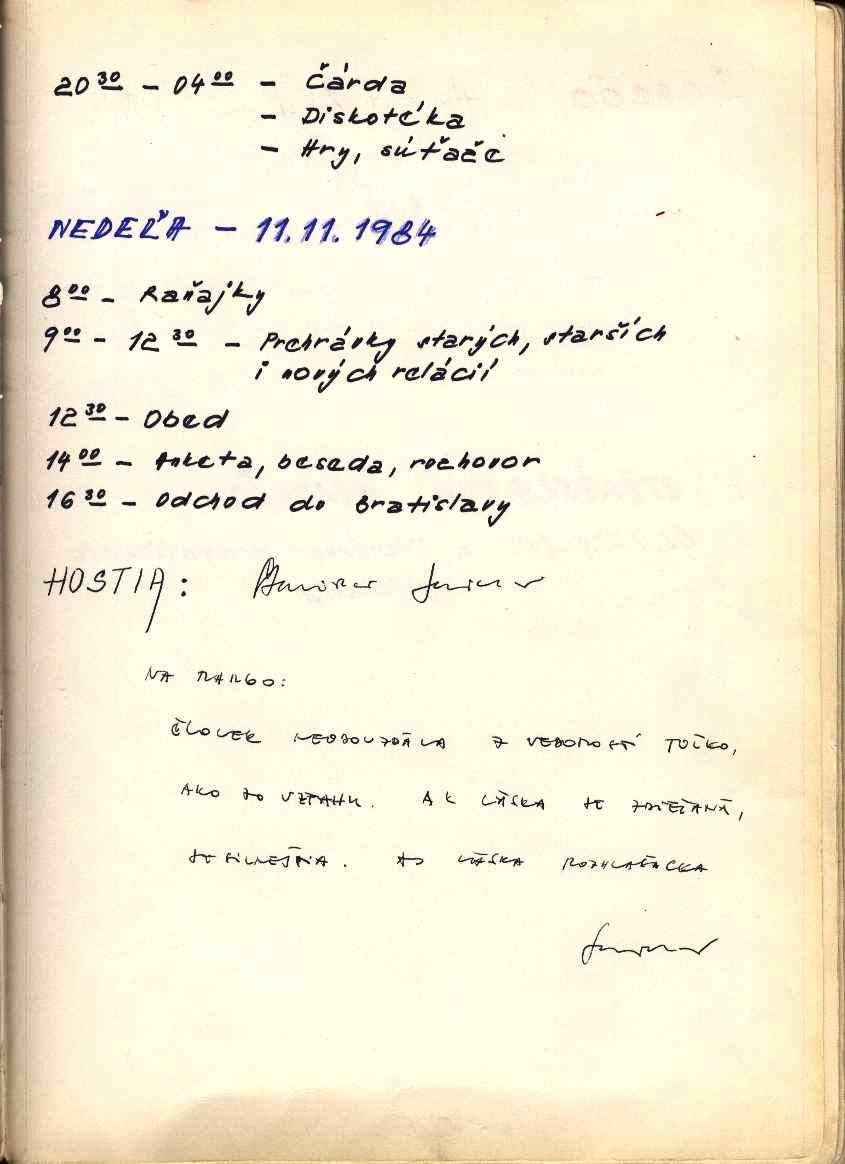 20 30 – 04 00 – Čárda
– Diskotéka
– Hry, súťaže
NEDEĽA – 11.11.1984
8 00 – Raňajky
9 00 – 12 30 – Prehrávky starých, starších
i nových relácií
12 30 – Obed
14 00 – Anketa, beseda, rozhovor
16 30 – Odchod do Bratislavy
HOSTIA:
NA MARGO:
ČLOVEK NEODOVZDÁVA Z VEDOMOSTÍ TOĽKO,
AKO ZO VZŤAHU. AK LÁSKA JE ZDIEĽANÁ,
JE SILNEJŠIA. AJ LÁSKA ROZHLASÁCKA